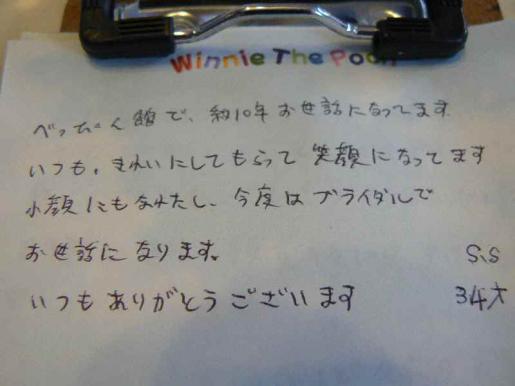 Winnie The Pooh
べっぴん館で、約10年お世話になってます
いつも、きれいにしてもらって笑顔になってます
小顔にもなれたし、今度はブライダルで
お世話になります。
S.S
いつもありがとうございます
34才